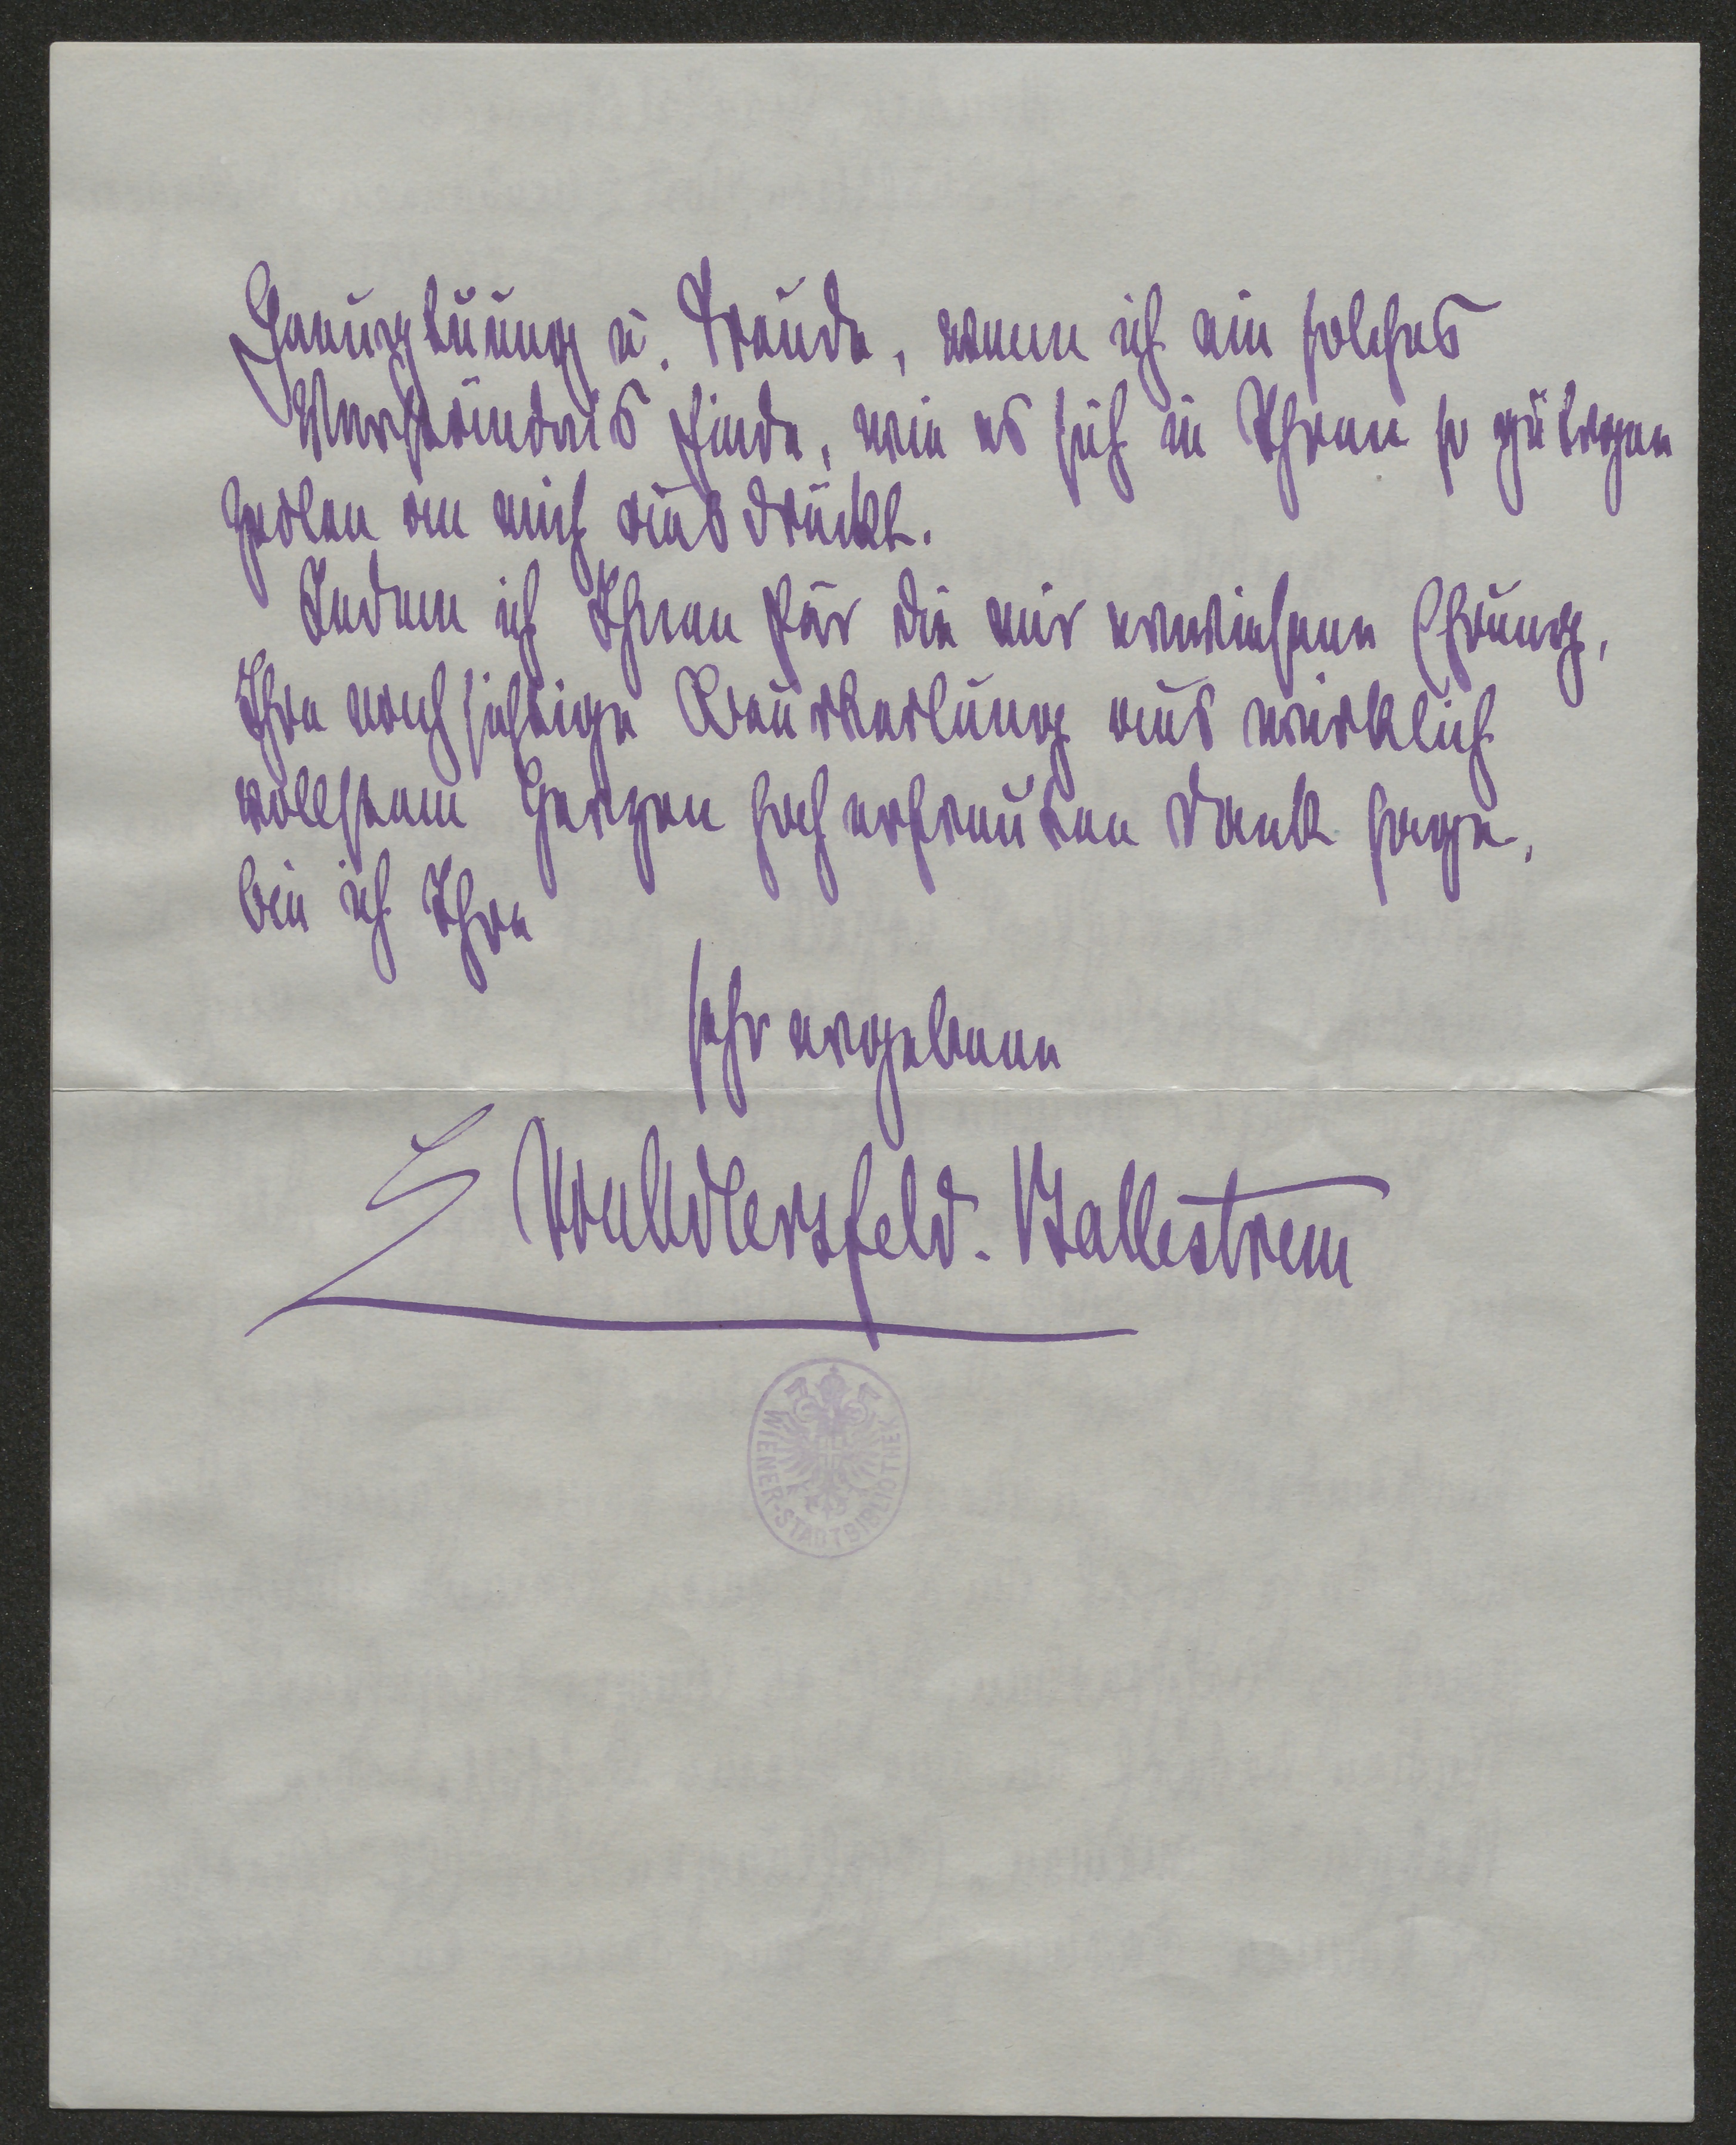 Genugtuung u. Freude, wenn ich ein solches
Verständnis finde, wie es sich in Ihren so gütigen
Zeilen an mich ausdrückt.
Indem ich Ihnen für die mir erwiesene Ehrung,
Ihre nachsichtige Beurteilung aus wirklich
vollstem Herzen hocherfreuten Dank sage,
bin ich Ihre
sehr ergebene
E von Adlersfeld-Ballestrem
WIENER-STADTBIBLIOTHEK